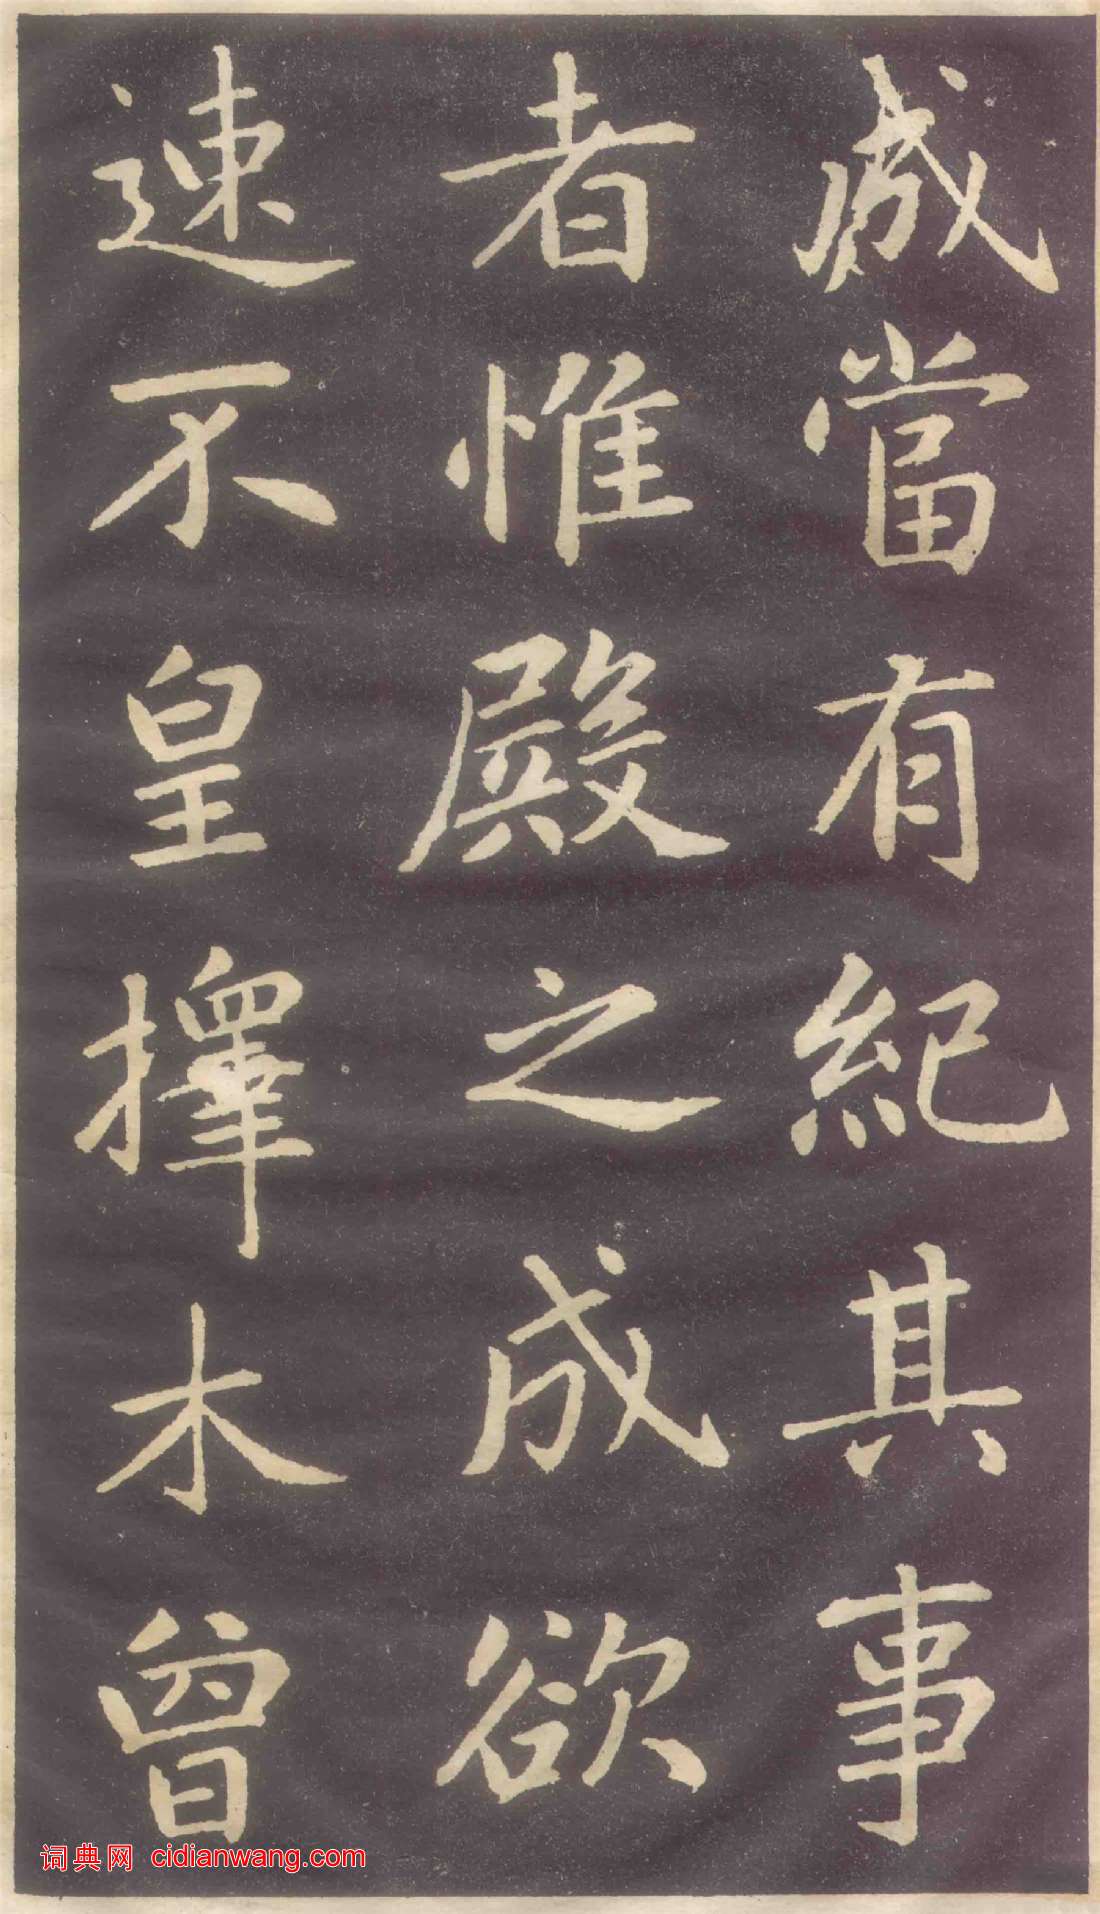 成當有紀其事
者惟殿之成欲
速不皇擇木曾
词典网 cidianwang.com